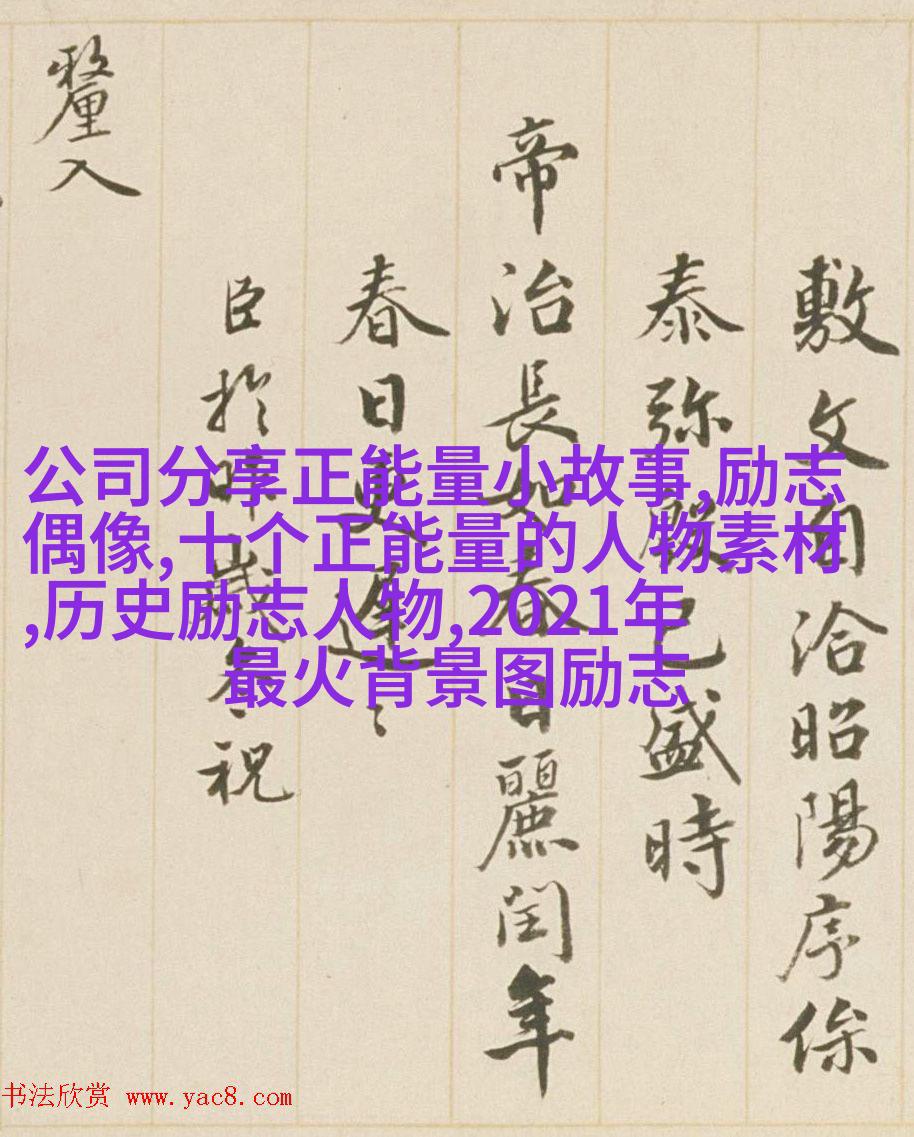 敷文自洽昭陽序
泰弥殷已盛時
帝治長如春日麗閏年
春日更遲〻
臣於昨歲祝
釐入
公司分享正能量小故事,励志
偶像,十个正能量的人物素材
,历史励志人物,2021年
最火背景图励志
书法欣赏 www.yac8.com